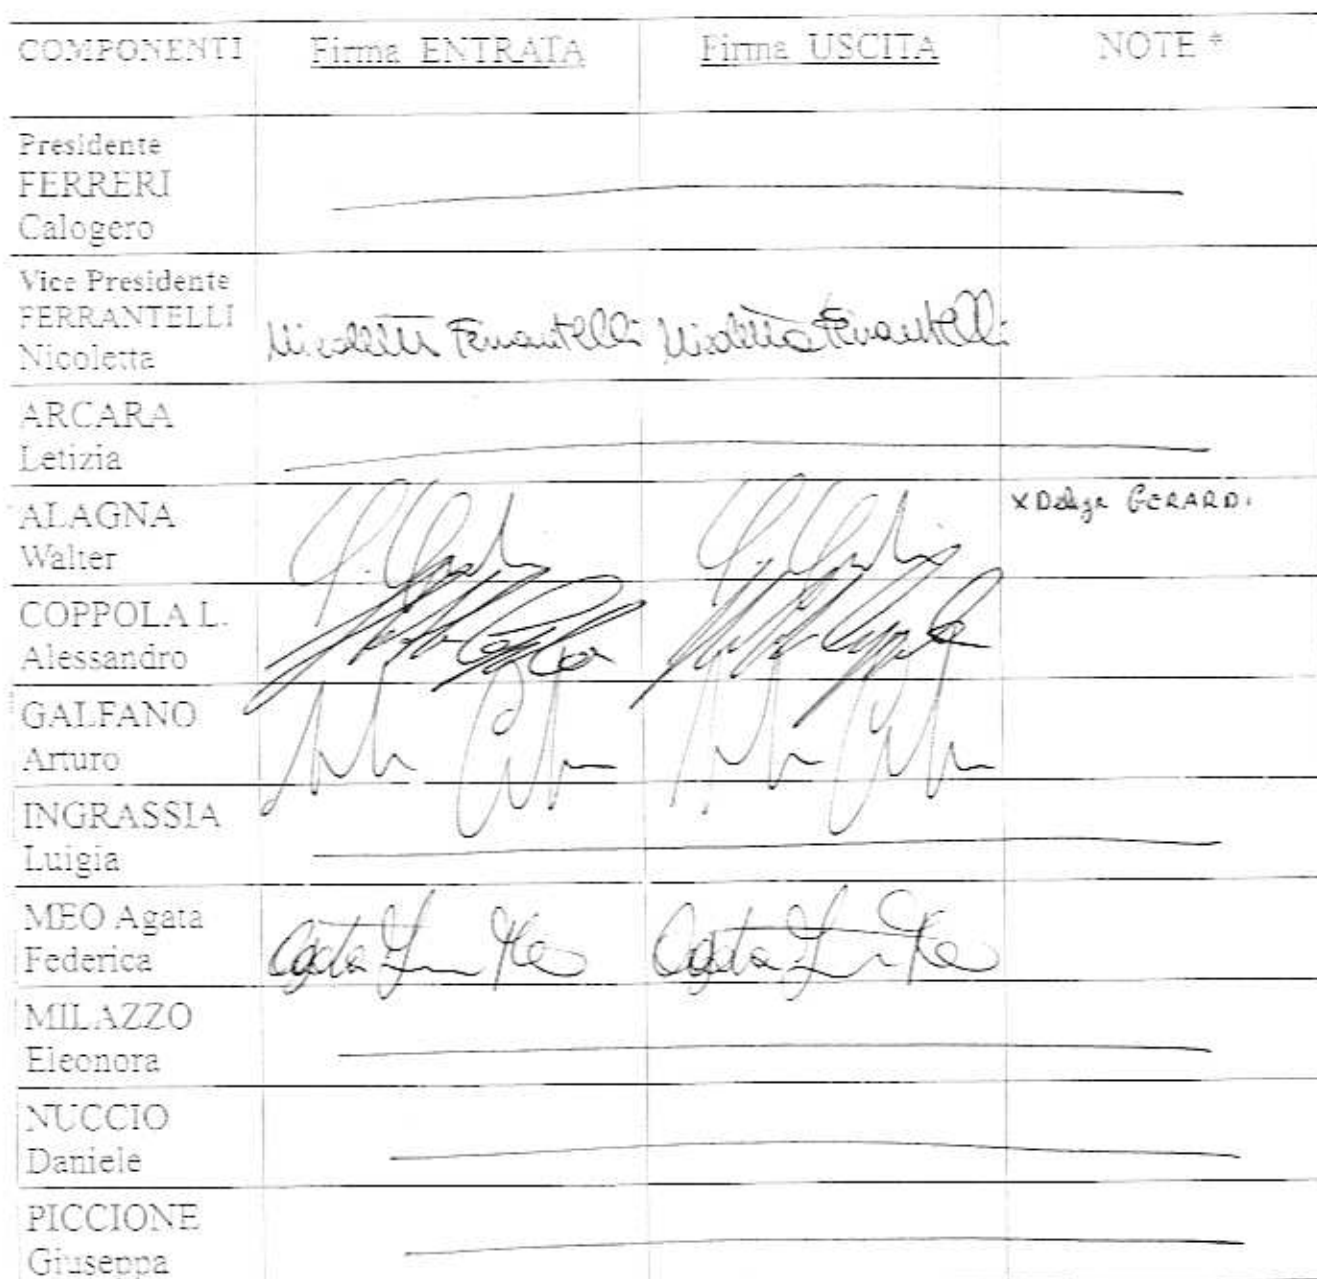 COMPONENTI Firma ENTRATA Firma USCITA NOTE *
Presidente
FERRERI
Calogero
Vice Presidente
FERRANTELLI
Nicoletta Nicoletta Ferrantelli Nicoletta Ferrantelli
ARCARA
Letizia
ALAGNA x Delega GERARDI
Walter
COPPOLA L.
Alessandro
GALFANO
Arturo
INGRASSIA
Luigia
MEO Agata
Federica
MILAZZO
Eleonora
NUCCIO
Daniele
PICCIONE
Giuseppa